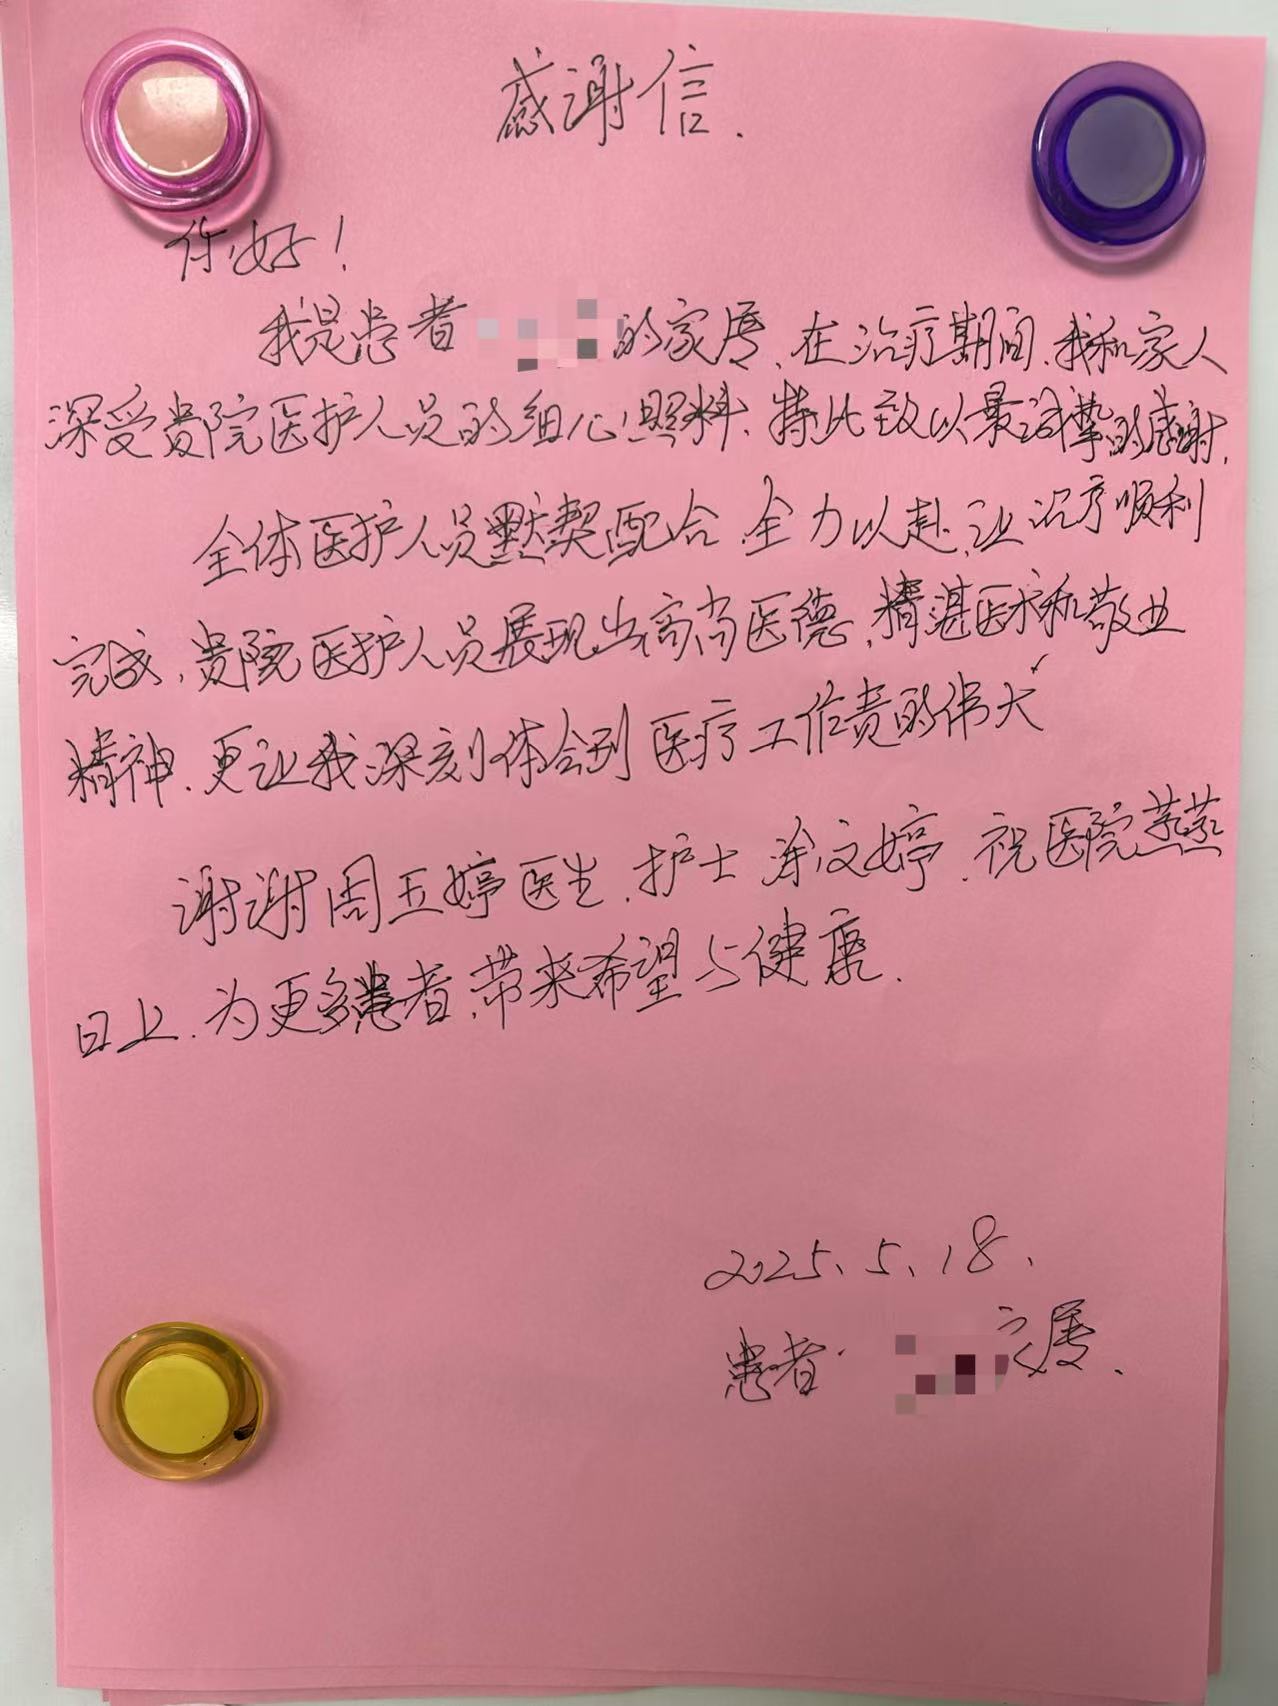 感谢信.
你好！
我是患者 的家属、在治疗期间、我和家人
深受贵院医护人员的细心照料、特此致以最诚挚的感谢.
全体医护人员默契配合、全力以赴、让治疗顺利
完成、贵院医护人员展现出高尚医德、精湛医术和敬业
精神、更让我深刻体会到医疗工作责的伟大
谢谢周玉婷医生、护士涂文婷、祝医院蒸蒸
日上、为更多患者、带来希望与健康.
2025、5、18、
患者 家属.